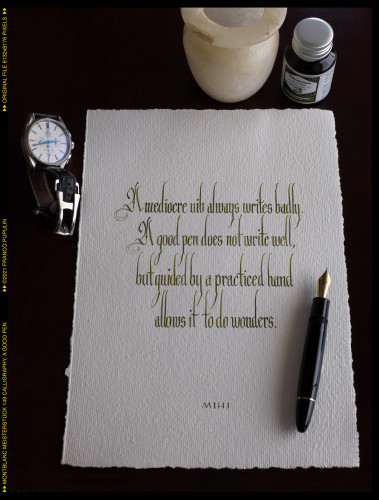 A mediocre nib always writes badly.
A good pen does not write well,
but guided by a practiced hand
allows it to do wonders.
▸▸ ORIGINAL FILE 6132x8176 PIXELS ▸▸
▸▸ ©2021 FRANCO PUPULIN
▸▸ MONTBLANC MEISTERSTÜCK 149 CALLIGRAPHY, A GOOD PEN